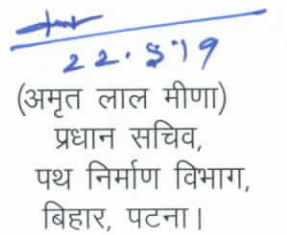 22.5.19
(अमृत लाल मीणा)
प्रधान सचिव,
पथ निर्माण विभाग,
बिहार, पटना।